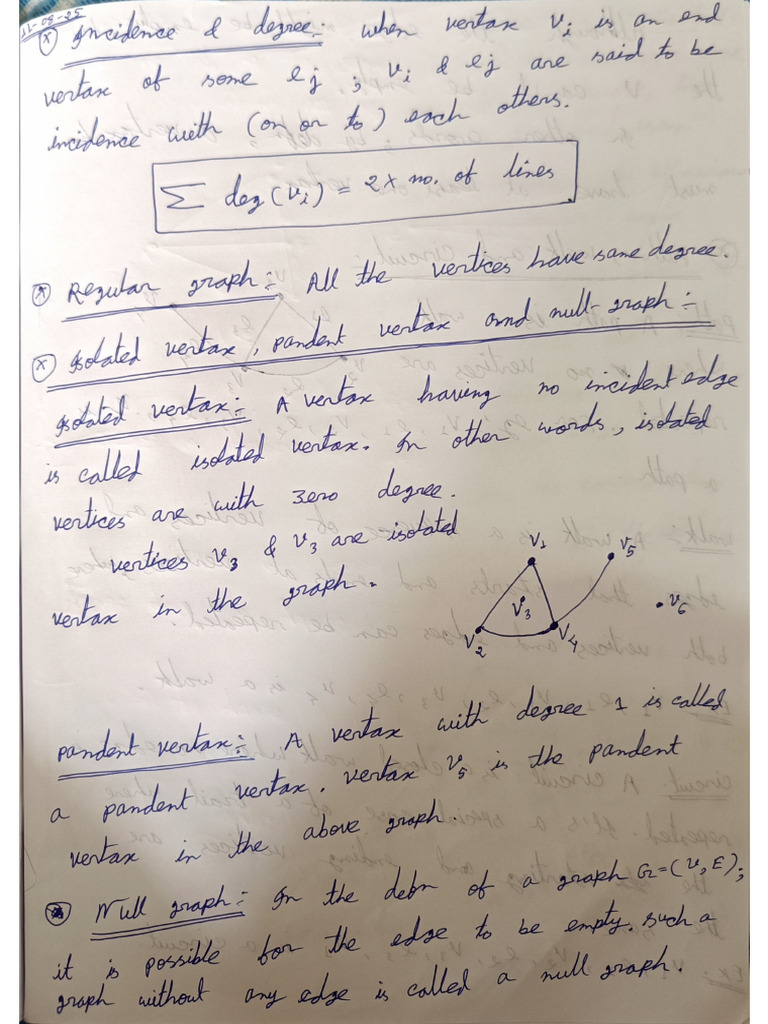 11-09-25
Incidence & degree:- when vertax vi is an end
vertax of some ej ; vi & ej are said to be
incidence with (on or to) each others.
∑ deg(vi) = 2 x no. of lines
Regular graph:- All the vertices have same degree.
Isolated vertax, pandent vertax and null-graph:-
Isolated vertax:- A vertax having no incident edge
is called isolated vertax. In other words, isolated
vertices are with zero degree.
vertices v3 & v3 are isolated
vertax in the graph.
v1 v5
v3 v6
v2 v4
pandent vertax:- A vertax with degree 1 is called
a pandent vertax. vertax v5 is the pandent
vertax in the above graph.
Null graph:- In the debn of a graph G=(V,E);
it is possible for the edge to be empty. such a
graph without any edge is called a null graph.